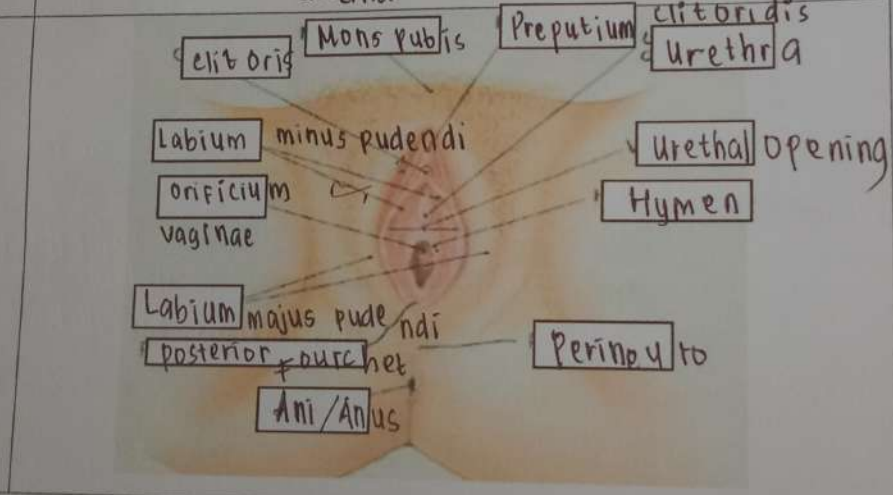 Mons pubis
Preputium clitoridis
clitoris
Urethra
Labium minus pudendi
Urethal opening
orificium
vaginae
Hymen
Labium majus pudendi
posterior fourchet
Ani/Anus